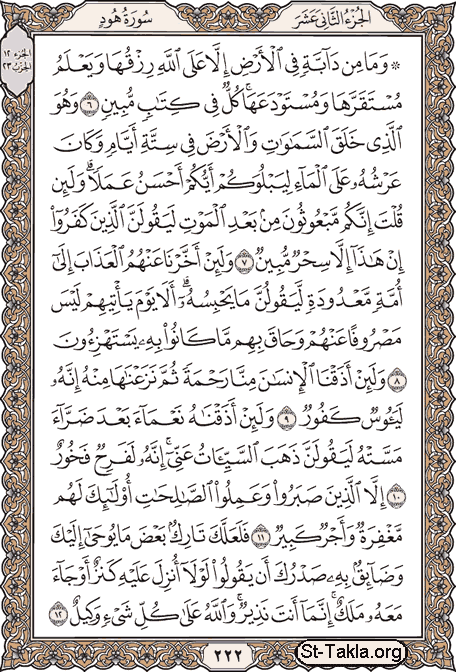 سُورَةُ هُودٍ
الجُزْءُ الثَّانِي عَشَرَ
الجزء ١٢
الحزب ٢٣
۞ وَمَا مِن دَآبَّةٍ فِي ٱلْأَرْضِ إِلَّا عَلَى ٱللَّهِ رِزْقُهَا وَيَعْلَمُ
مُسْتَقَرَّهَا وَمُسْتَوْدَعَهَا ۚ كُلٌّ فِي كِتَٰبٍ مُّبِينٍ ٦ وَهُوَ
ٱلَّذِي خَلَقَ ٱلسَّمَٰوَٰتِ وَٱلْأَرْضَ فِي سِتَّةِ أَيَّامٍ وَكَانَ
عَرْشُهُۥ عَلَى ٱلْمَآءِ لِيَبْلُوَكُمْ أَيُّكُمْ أَحْسَنُ عَمَلًا ۗ وَلَئِن
قُلْتَ إِنَّكُم مَّبْعُوثُونَ مِنۢ بَعْدِ ٱلْمَوْتِ لَيَقُولَنَّ ٱلَّذِينَ كَفَرُوٓا۟
إِنْ هَٰذَآ إِلَّا سِحْرٌ مُّبِينٌ ٧ وَلَئِنْ أَخَّرْنَا عَنْهُمُ ٱلْعَذَابَ إِلَىٰٓ
أُمَّةٍ مَّعْدُودَةٍ لَّيَقُولُنَّ مَا يَحْبِسُهُۥٓ ۗ أَلَا يَوْمَ يَأْتِيهِمْ لَيْسَ
مَصْرُوفًا عَنْهُمْ وَحَاقَ بِهِم مَّا كَانُوا۟ بِهِۦ يَسْتَهْزِءُونَ
٨ وَلَئِنْ أَذَقْنَا ٱلْإِنسَٰنَ مِنَّا رَحْمَةً ثُمَّ نَزَعْنَٰهَا مِنْهُ إِنَّهُۥ
لَيَـُٔوسٌ كَفُورٌ ٩ وَلَئِنْ أَذَقْنَٰهُ نَعْمَآءَ بَعْدَ ضَرَّآءَ
مَسَّتْهُ لَيَقُولَنَّ ذَهَبَ ٱلسَّيِّـَٔاتُ عَنِّيٓ ۚ إِنَّهُۥ لَفَرِحٌ فَخُورٌ
١٠ إِلَّا ٱلَّذِينَ صَبَرُوا۟ وَعَمِلُوا۟ ٱلصَّٰلِحَٰتِ أُو۟لَٰٓئِكَ لَهُم
مَّغْفِرَةٌ وَأَجْرٌ كَبِيرٌ ١١ فَلَعَلَّكَ تَارِكٌۢ بَعْضَ مَا يُوحَىٰٓ إِلَيْكَ
وَضَآئِقٌۢ بِهِۦ صَدْرُكَ أَن يَقُولُوا۟ لَوْلَآ أُنزِلَ عَلَيْهِ كَنزٌ أَوْ جَآءَ
مَعَهُۥ مَلَكٌ ۚ إِنَّمَآ أَنتَ نَذِيرٌ ۚ وَٱللَّهُ عَلَىٰ كُلِّ شَيْءٍ وَكِيلٌ ١٢
٢٢٢
St-Takla.org